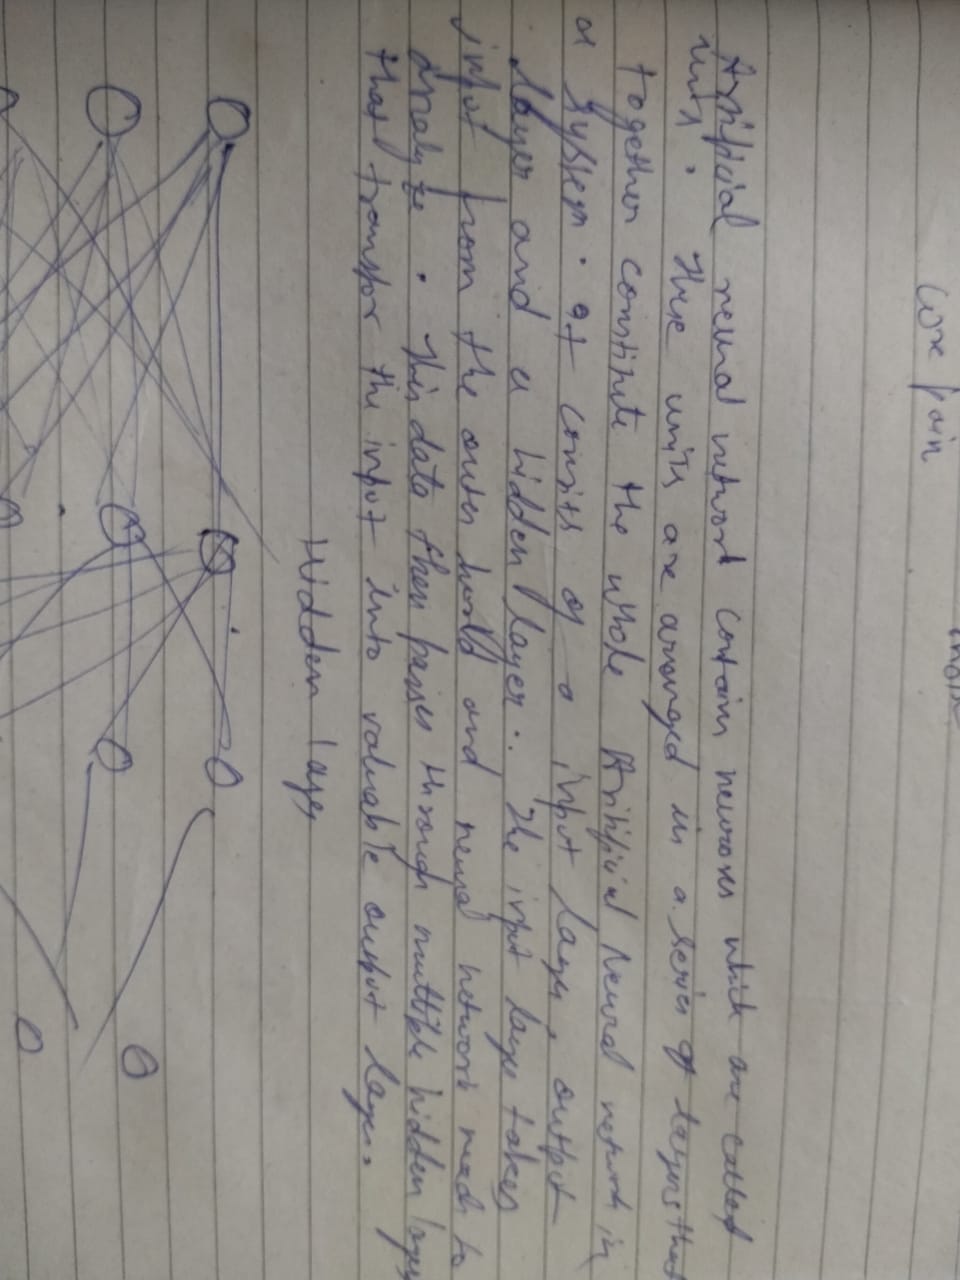 core pain
Artificial neural network contain neurones which are called
units. These units are arranged in a series of layers that
together constinute the whole Artificial Neural network in
a system. It consists of a input layer, output
layer and a hidden layer. The input layer takes
input from the outer world and neural network needs to
analyze. This data then passes through multiple hidden layers
that transfor the input into valuable output layer.
Hidden layer